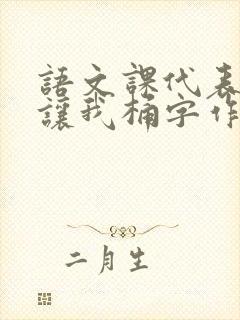 語文課代表
讓我桶字作
二月生